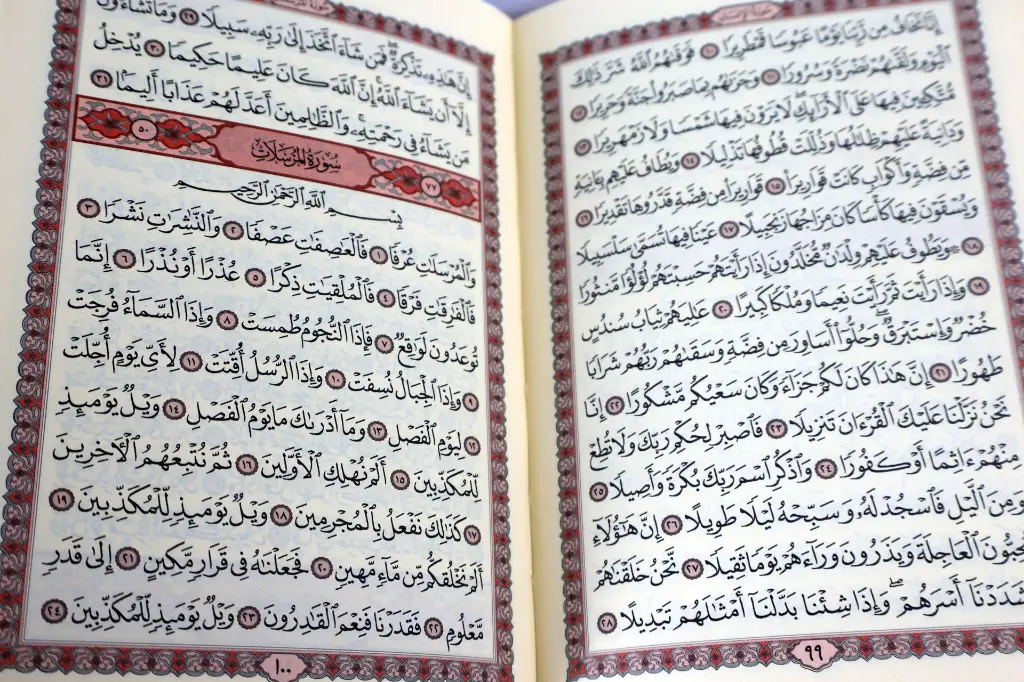 إِنَّا نَخَافُ مِن رَّبِّنَا يَوْمًا عَبُوسًا قَمْطَرِيرًا ١٠ فَوَقَىٰهُمُ ٱللَّهُ شَرَّ ذَٰلِكَ
ٱلْيَوْمِ وَلَقَّىٰهُمْ نَضْرَةً وَسُرُورًا ١١ وَجَزَىٰهُم بِمَا صَبَرُوا۟ جَنَّةً وَحَرِيرًا ١٢
مُّتَّكِـِٔينَ فِيهَا عَلَى ٱلْأَرَآئِكِ ۖ لَا يَرَوْنَ فِيهَا شَمْسًا وَلَا زَمْهَرِيرًا ١٣
وَدَانِيَةً عَلَيْهِمْ ظِلَٰلُهَا وَذُلِّلَتْ قُطُوفُهَا تَذْلِيلًا ١٤ وَيُطَافُ عَلَيْهِم بِـَٔانِيَةٍ
مِّن فِضَّةٍ وَأَكْوَابٍ كَانَتْ قَوَارِيرَا۠ ١٥ قَوَارِيرَا۟ مِن فِضَّةٍ قَدَّرُوهَا تَقْدِيرًا ١٦
وَيُسْقَوْنَ فِيهَا كَأْسًا كَانَ مِزَاجُهَا زَنجَبِيلًا ١٧ عَيْنًا فِيهَا تُسَمَّىٰ سَلْسَبِيلًا
١٨ ۞ وَيَطُوفُ عَلَيْهِمْ وِلْدَٰنٌ مُّخَلَّدُونَ إِذَا رَأَيْتَهُمْ حَسِبْتَهُمْ لُؤْلُؤًا مَّنثُورًا
١٩ وَإِذَا رَأَيْتَ ثَمَّ رَأَيْتَ نَعِيمًا وَمُلْكًا كَبِيرًا ٢٠ عَٰلِيَهُمْ ثِيَابُ سُندُسٍ
خُضْرٌ وَإِسْتَبْرَقٌ ۖ وَحُلُّوٓا۟ أَسَاوِرَ مِن فِضَّةٍ وَسَقَىٰهُمْ رَبُّهُمْ شَرَابًا
طَهُورًا ٢١ إِنَّ هَٰذَا كَانَ لَكُمْ جَزَآءً وَكَانَ سَعْيُكُم مَّشْكُورًا ٢٢ إِنَّا
نَحْنُ نَزَّلْنَا عَلَيْكَ ٱلْقُرْءَانَ تَنزِيلًا ٢٣ فَٱصْبِرْ لِحُكْمِ رَبِّكَ وَلَا تُطِعْ
مِنْهُمْ ءَاثِمًا أَوْ كَفُورًا ٢٤ وَٱذْكُرِ ٱسْمَ رَبِّكَ بُكْرَةً وَأَصِيلًا ٢٥
وَمِنَ ٱلَّيْلِ فَٱسْجُدْ لَهُۥ وَسَبِّحْهُ لَيْلًا طَوِيلًا ٢٦ إِنَّ هَٰٓؤُلَآءِ
يُحِبُّونَ ٱلْعَاجِلَةَ وَيَذَرُونَ وَرَآءَهُمْ يَوْمًا ثَقِيلًا ٢٧ نَّحْنُ خَلَقْنَٰهُمْ
وَشَدَدْنَآ أَسْرَهُمْ ۖ وَإِذَا شِئْنَا بَدَّلْنَآ أَمْثَٰلَهُمْ تَبْدِيلًا ٢٨
٩٩
إِنَّ هَٰذِهِۦ تَذْكِرَةٌ ۖ فَمَن شَآءَ ٱتَّخَذَ إِلَىٰ رَبِّهِۦ سَبِيلًا ٢٩ وَمَا تَشَآءُونَ
إِلَّآ أَن يَشَآءَ ٱللَّهُ ۚ إِنَّ ٱللَّهَ كَانَ عَلِيمًا حَكِيمًا ٣٠ يُدْخِلُ
مَن يَشَآءُ فِى رَحْمَتِهِۦ ۚ وَٱلظَّٰلِمِينَ أَعَدَّ لَهُمْ عَذَابًا أَلِيمًۢا ٣١
٧٧ سُورَةُ المُرْسَلَات ٥٠
بِسْمِ ٱللَّهِ ٱلرَّحْمَٰنِ ٱلرَّحِيمِ
وَٱلْمُرْسَلَٰتِ عُرْفًا ١ فَٱلْعَٰصِفَٰتِ عَصْفًا ٢ وَٱلنَّٰشِرَٰتِ نَشْرًا ٣
فَٱلْفَٰرِقَٰتِ فَرْقًا ٤ فَٱلْمُلْقِيَٰتِ ذِكْرًا ٥ عُذْرًا أَوْ نُذْرًا ٦ إِنَّمَا
تُوعَدُونَ لَوَٰقِعٌ ٧ فَإِذَا ٱلنُّجُومُ طُمِسَتْ ٨ وَإِذَا ٱلسَّمَآءُ فُرِجَتْ
٩ وَإِذَا ٱلْجِبَالُ نُسِفَتْ ١٠ وَإِذَا ٱلرُّسُلُ أُقِّتَتْ ١١ لِأَىِّ يَوْمٍ أُجِّلَتْ
١٢ لِيَوْمِ ٱلْفَصْلِ ١٣ وَمَآ أَدْرَىٰكَ مَا يَوْمُ ٱلْفَصْلِ ١٤ وَيْلٌ يَوْمَئِذٍ
لِّلْمُكَذِّبِينَ ١٥ أَلَمْ نُهْلِكِ ٱلْأَوَّلِينَ ١٦ ثُمَّ نُتْبِعُهُمُ ٱلْـَٔاخِرِينَ
١٧ كَذَٰلِكَ نَفْعَلُ بِٱلْمُجْرِمِينَ ١٨ وَيْلٌ يَوْمَئِذٍ لِّلْمُكَذِّبِينَ ١٩
أَلَمْ نَخْلُقكُّم مِّن مَّآءٍ مَّهِينٍ ٢٠ فَجَعَلْنَٰهُ فِى قَرَارٍ مَّكِينٍ ٢١ إِلَىٰ قَدَرٍ
مَّعْلُومٍ ٢٢ فَقَدَرْنَا فَنِعْمَ ٱلْقَٰدِرُونَ ٢٣ وَيْلٌ يَوْمَئِذٍ لِّلْمُكَذِّبِينَ ٢٤
١٠٠